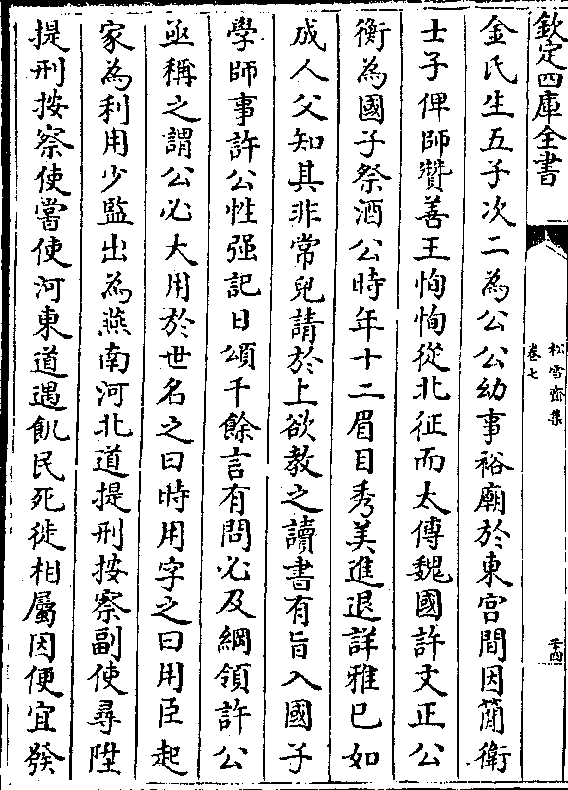 欽定四庫全書
松雪齋集
卷七
二十四
金氏生五子次二為公公幼事裕廟於東宫間因簡衛
士子俾師贊善王恂恂從北征而太傅魏國許文正公
衡為國子祭酒公時年十二眉目秀美進退詳雅已如
成人父知其非常兒請於上欲教之讀書有旨入國子
學師事許公性强記日頌千餘言有問必及綱領許公
亟稱之謂公必大用於世名之曰時用字之曰用臣起
家為利用少監出為燕南河北道提刑按察副使尋陞
提刑按察使嘗使河東道遇飢民死徙相屬因便宜發